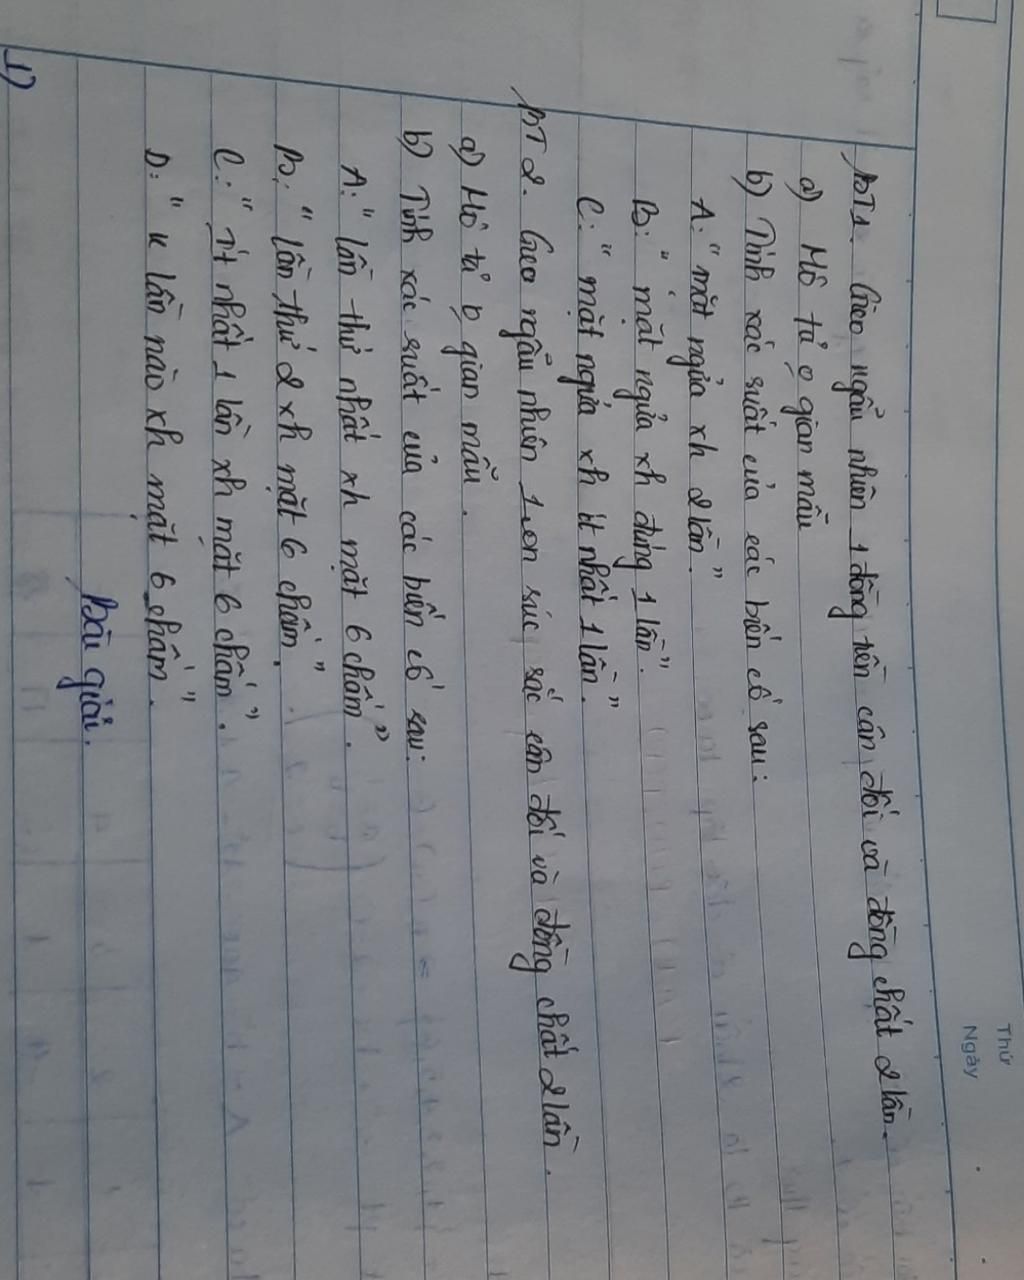 Thứ
Ngày
BT1. Gieo ngẫu nhiên 1 đồng tiền cân đối và đồng chất 2 lần.
a) Mô tả o gian mẫu
b) Tính xác suất của các biến cố sau:
A: "mặt ngửa xh 2 lần".
B: "mặt ngửa xh đúng 1 lần".
C: "mặt ngửa xh ít nhất 1 lần."
BT 2. Gieo ngẫu nhiên 1 con súc sắc cân đối và đồng chất 2 lần.
a) Mô tả o gian mẫu.
b) Tính xác suất của các biến cố sau:
A: "lần thứ nhất xh mặt 6 chấm".
B: "lần thứ 2 xh mặt 6 chấm".
C: "ít nhất 1 lần xh mặt 6 chấm".
D: "k lần nào xh mặt 6 chấm".
Bài giải.
1)